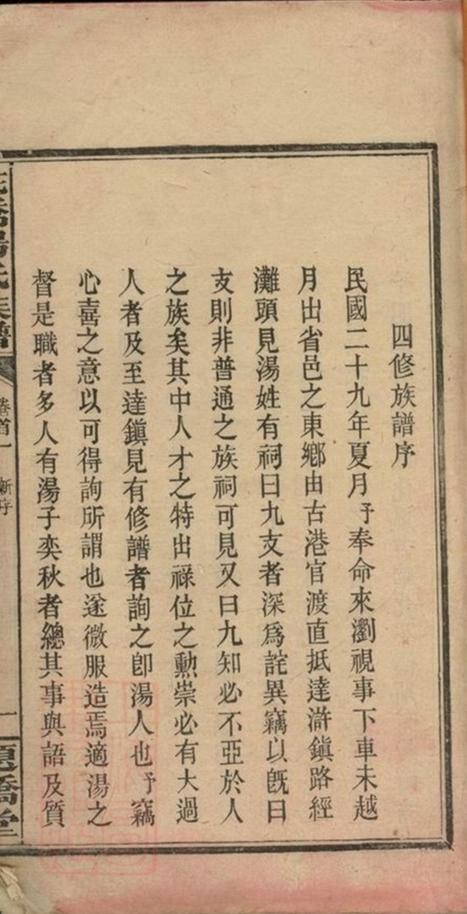 四修族譜序
民國二十九年夏月予奉命來瀏視事下車未越
月出省邑之東鄉由古港官渡直抵達滸鎮路經
灘頭見湯姓有祠曰九支者深為詫異竊以既曰
支則非普通之族祠可見又曰九知必不亞於人
之族矣其中人才之特出祿位之勳崇必有大過
人者及至達鎮見有修譜者詢之卽湯人也予竊
心喜之意以可得詢所謂也遂微服造焉適湯之
督是職者多人有湯子奕秋者總其事與語及質
湯氏族譜
卷首一
新序
一